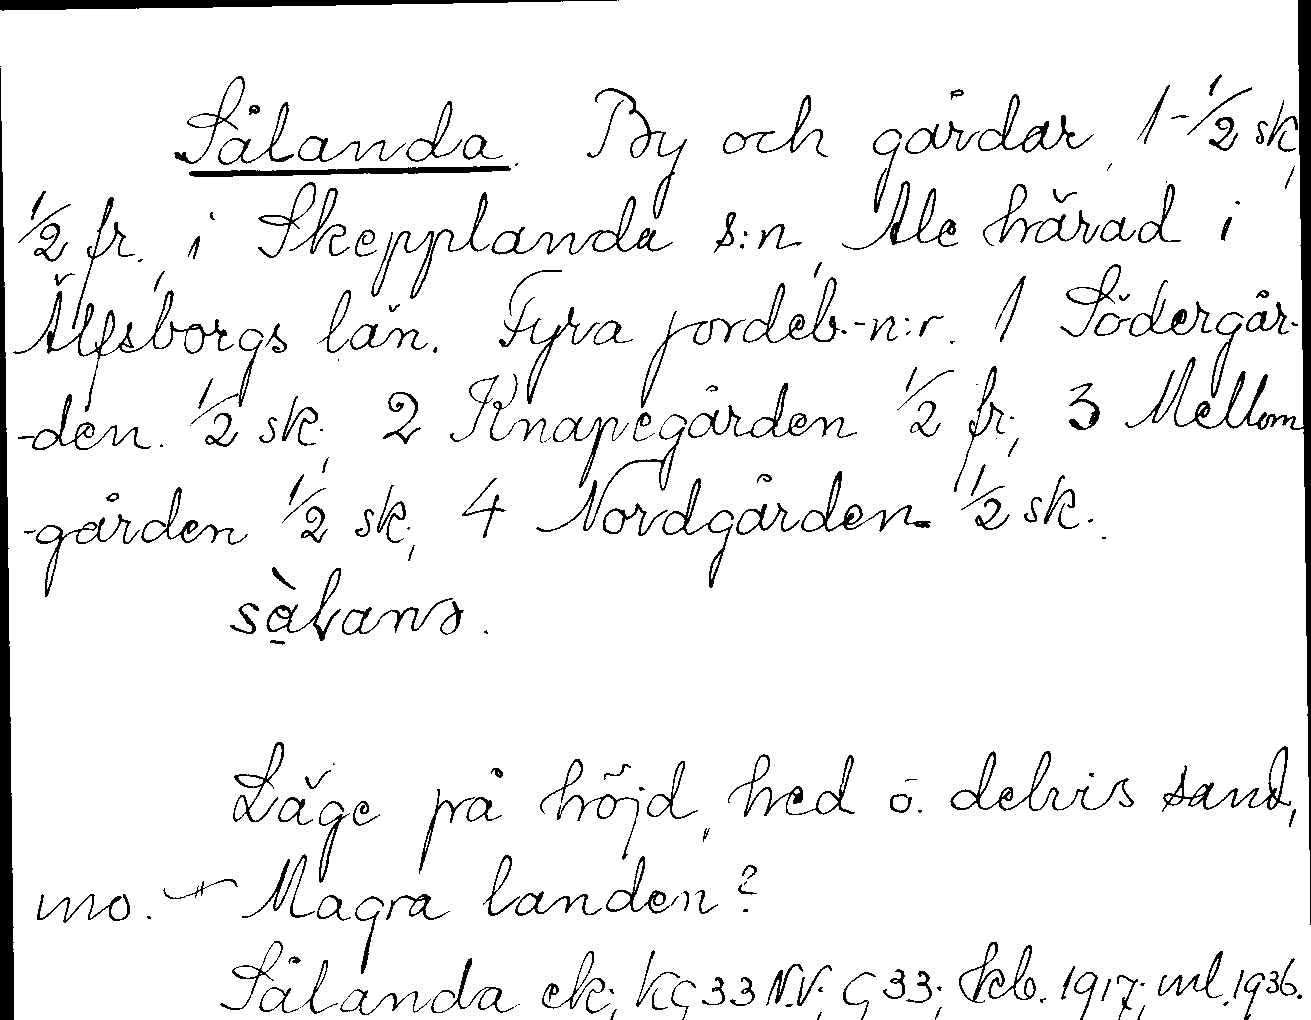 Sålanda. By och gårdar, 1-1/2 sk,
1/2 fr., i Skepplanda s:n, Ale härad i
Älfsborgs län. Fyra jordeb.-n:r. 1 Södergår-
-den. 1/2 sk; 2 Knapegården 1/2 fr; 3 Mellom
-gården 1/2 sk; 4 Nordgården 1/2 sk.
Läge på höjd, hed o. delvis sand,
mo. Magra landen?
Sålanda ek; KG 33 N.V; G 33; kb. 1917; ml. 1936.